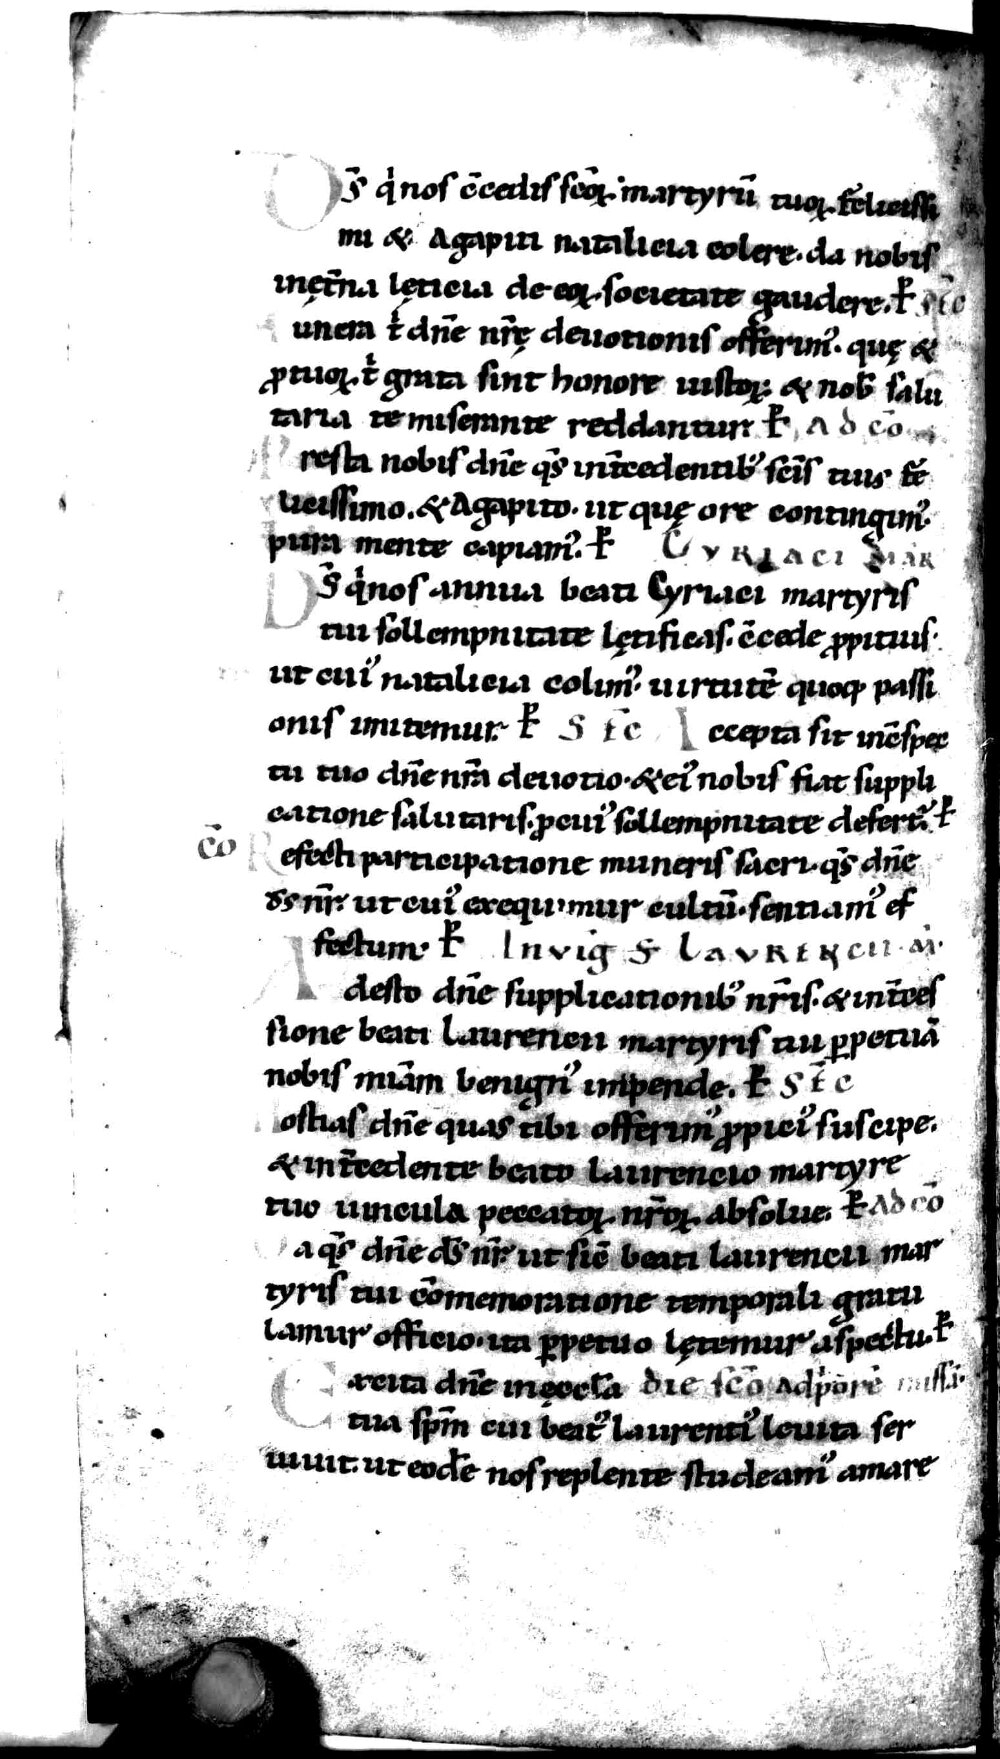 Ds̄ qͥ nos c̄cedis scōꝝ martyrū tuoꝝ felicissi
mi & Agapiti natalicia colere. da nobis
in ęt̄na lęticia de eoꝝ societate gaudere. ꝑ Sēc
Munera t̄ dn̄e nr̄ę deuotionis offerimꝰ. quę &
ꝓ tuoꝝ t̄ grata sint honore iustoꝝ. & nob̄ salu
taria te miserante reddantur. ꝑ Ad cō
Presta nobis dn̄e qs̄ int̄cedentibꝰ scīs tuis fe
licissimo. & Agapito. ut quę ore contingimꝰ.
pura mente capiamꝰ. ꝑ Cyriaci Mar
Ds̄ qͥ nos annua beati Cyriaci martyris
tui sollempnitate lętificas. c̄cede ꝓpitius.
ut cuiꝰ natalicia colimꝰ. uirtutē quoq; passi
onis imitemur. ꝑ Sēc Accepta sit in c̄spec
tu tuo dn̄e nr̄a deuotio. & eiꝰ nobis fiat suppli
catione salutaris. ꝓ cuiꝰ sollempnitate defert᷑. ꝑ
cō Refecti participatione muneris sacri. qs̄ dn̄e
ds̄ nr̄. ut cuiꝰ exequimur cultū. sentiamꝰ ef
fectum. ꝑ In vig S Laurencii. M.
Adesto dn̄e supplicationibꝰ nr̄is. & int̄ces
sione beati Laurencii martyris tui ꝑpetuā
nobis mīam benignꝰ impende. ꝑ Sēc
Hostias dn̄e quas tibi offerimꝰ ꝓpiciꝰ suscipe.
& int̄cedente beato Laurencio martyre
tuo uincula peccatoꝝ nr̄oꝝ absolue. ꝑ Ad cō
Da qs̄ dn̄e ds̄ nr̄. ut sic̄ beati laurencii mar
tyris tui cōmemoratione temporali gratu
lamur officio. ita ꝑpetuo lętemur aspectu. ꝑ
Excita dn̄e in ęccl̄a die scō ad pͥore missā.
tua spm̄ cui beatꝰ laurentiꝰ leuita ser
uiuit. ut eodē nos replente studeamꝰ amare